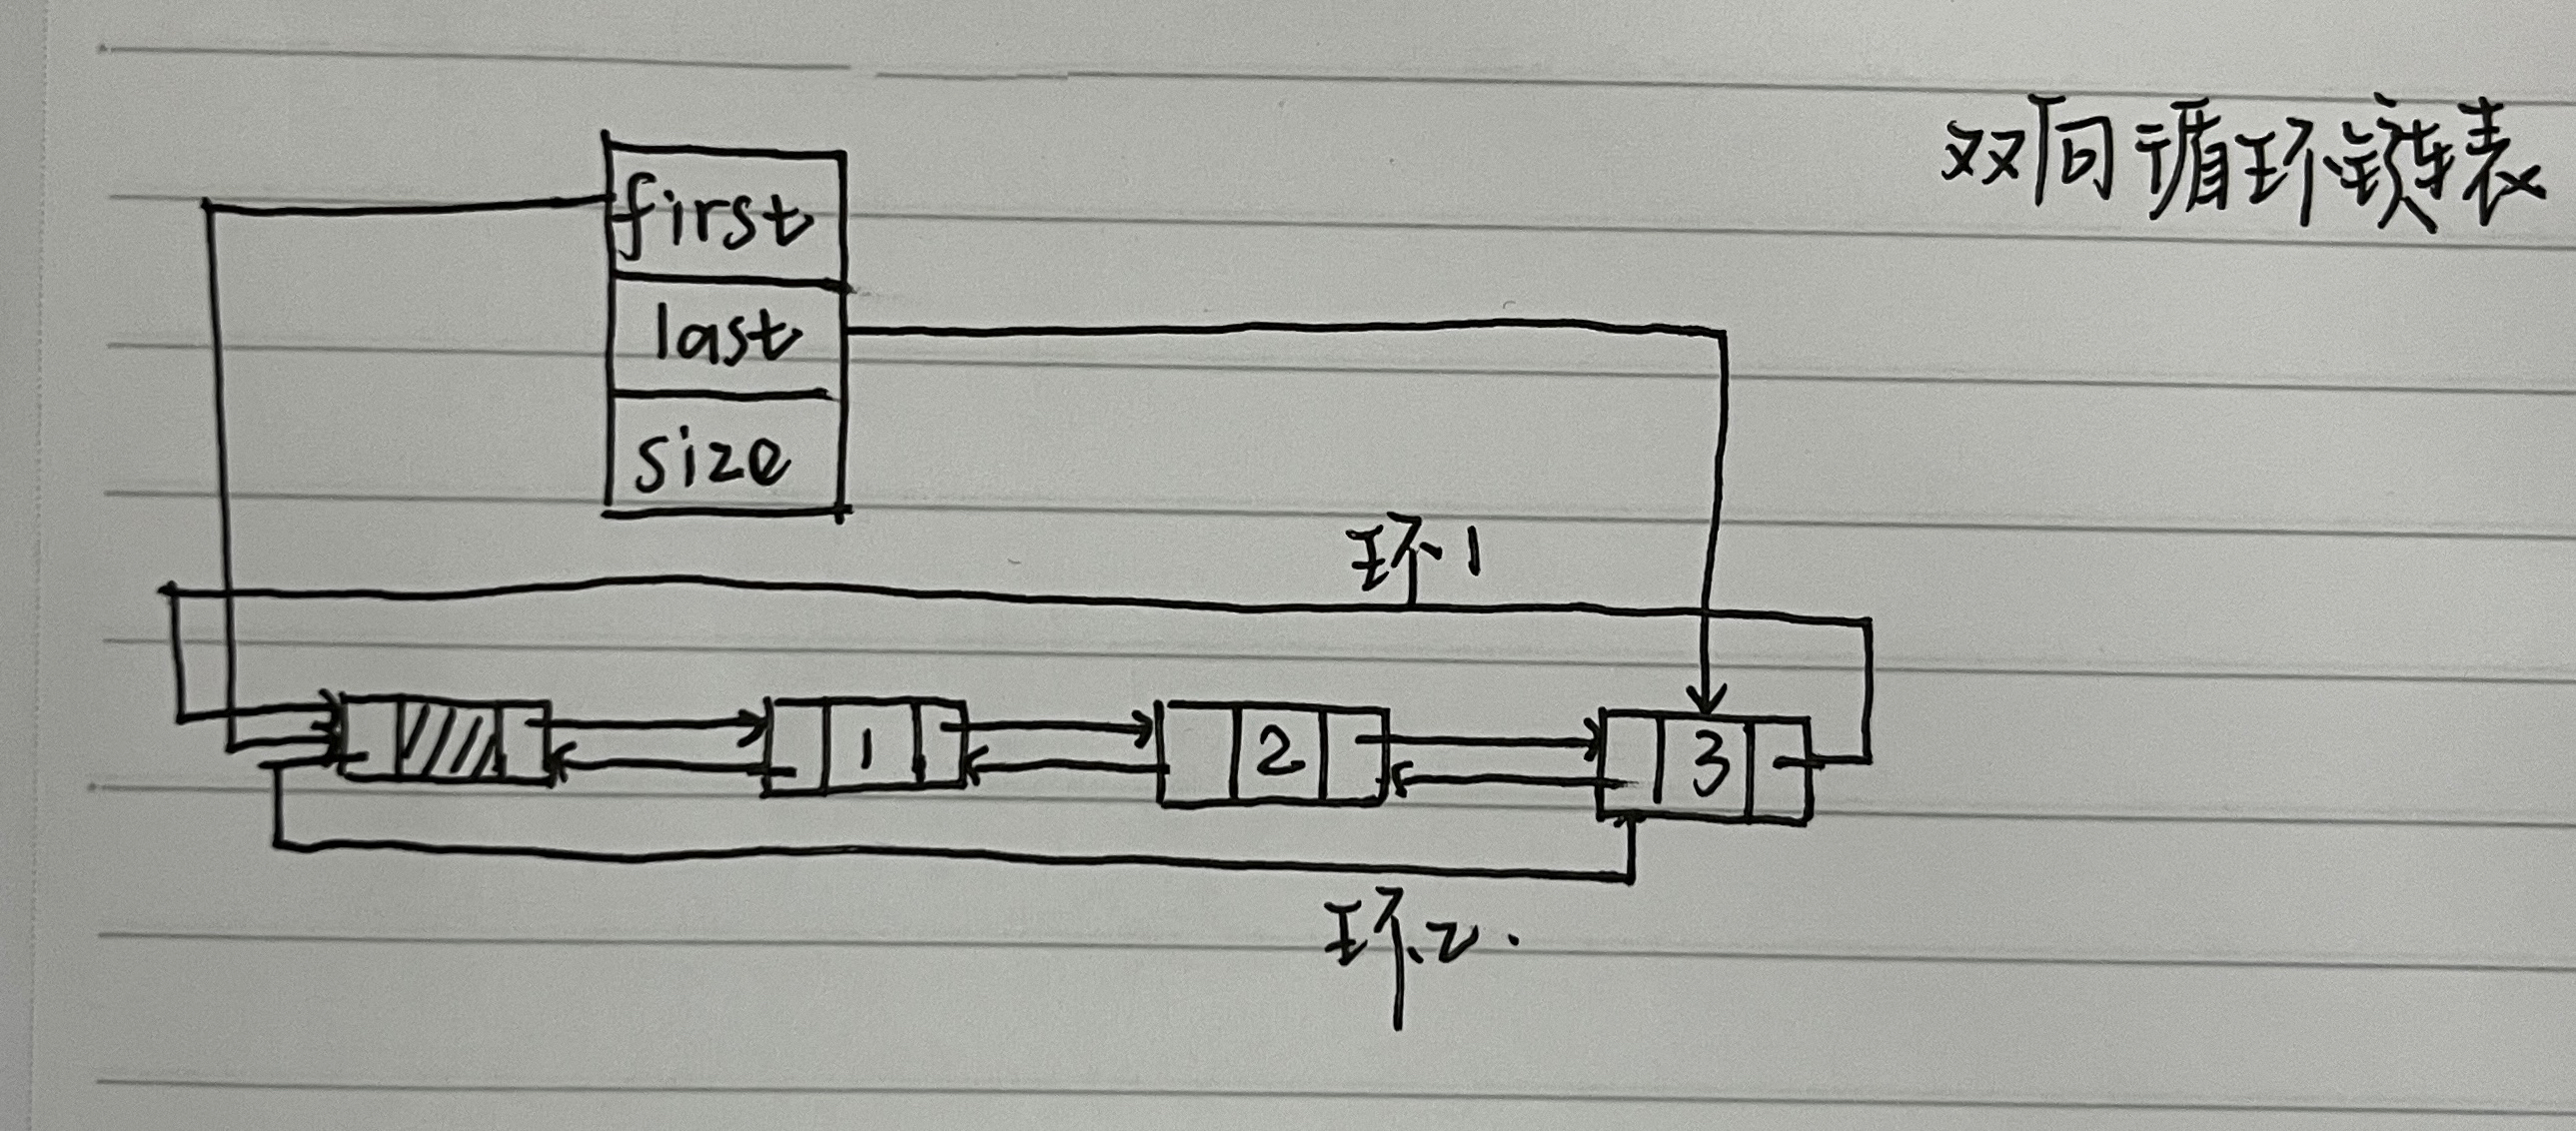 双向循环链表
first
last
size
环1
1
2
3
环2.